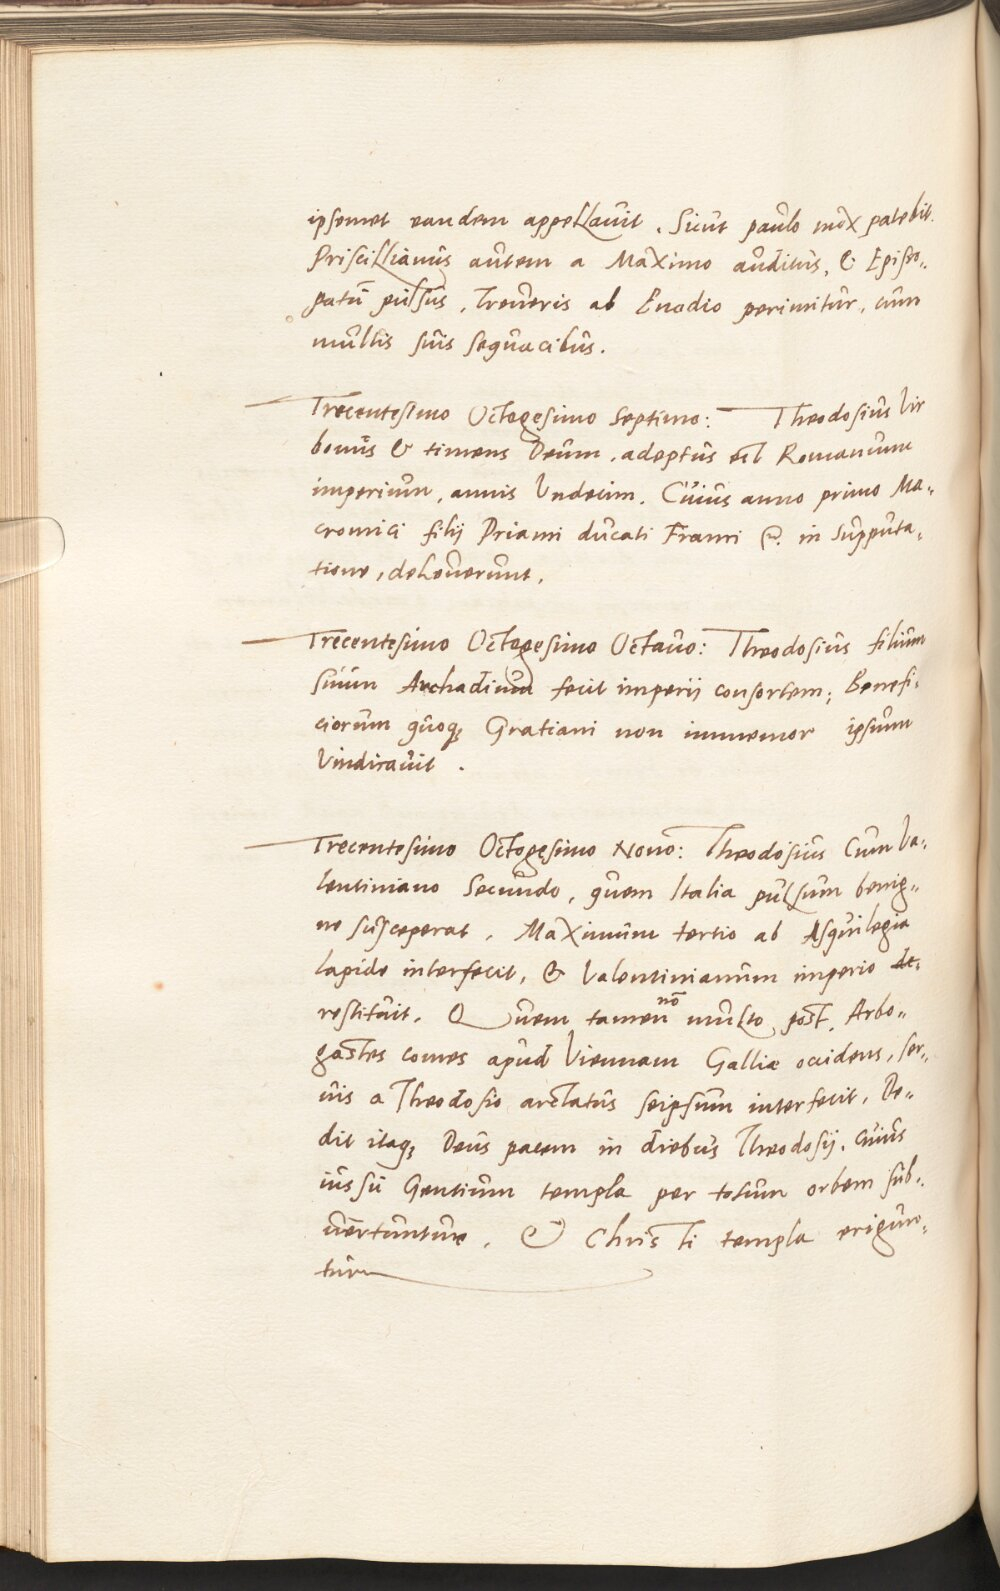 ipsemet eandem appellauit. Sicut paulo mox patebit.
Priscillianus autem a Maximo auditus, & Episco-
patū pulsus, Treueris ab Euodio perimitur, cum
multis suis sequacibus.
Trecentesimo Octogesimo septimo: Theodosius Vir
bonus & timens Deum, adeptus est Romanum
imperium, annis Vndecim. Cuius anno primo Ma-
cromici filij Priami ducati Franci &. in supputa-
tione, deleuerunt.
Trecentesimo Octogesimo Octauo: Theodosius filium
suum Archadium fecit imperij consortem; Benefi-
ciorum quoq; Gratiani non immemor ipsum
Vindicauit.
Trecentesimo Octogesimo Nono: Theodosius Cum Va-
lentiniano Secundo, quem Italia pulsum benig-
ne susceperat, Maximum tertio ab Asquilegia
lapide interfecit, & Valentinianum imperio de-
restituit. Quem tamen nō multo post, Arbo-
gastes comes apud Viennam Galliæ occidens, ser-
uis a Theodosio arctatus seipsum interfecit. De-
dit itaq; Deus pacem in diebus Theodosij. Cuius
iussu Gentium templa per totum orbem sub-
uertuntur, & Christi templa erigun-
tur